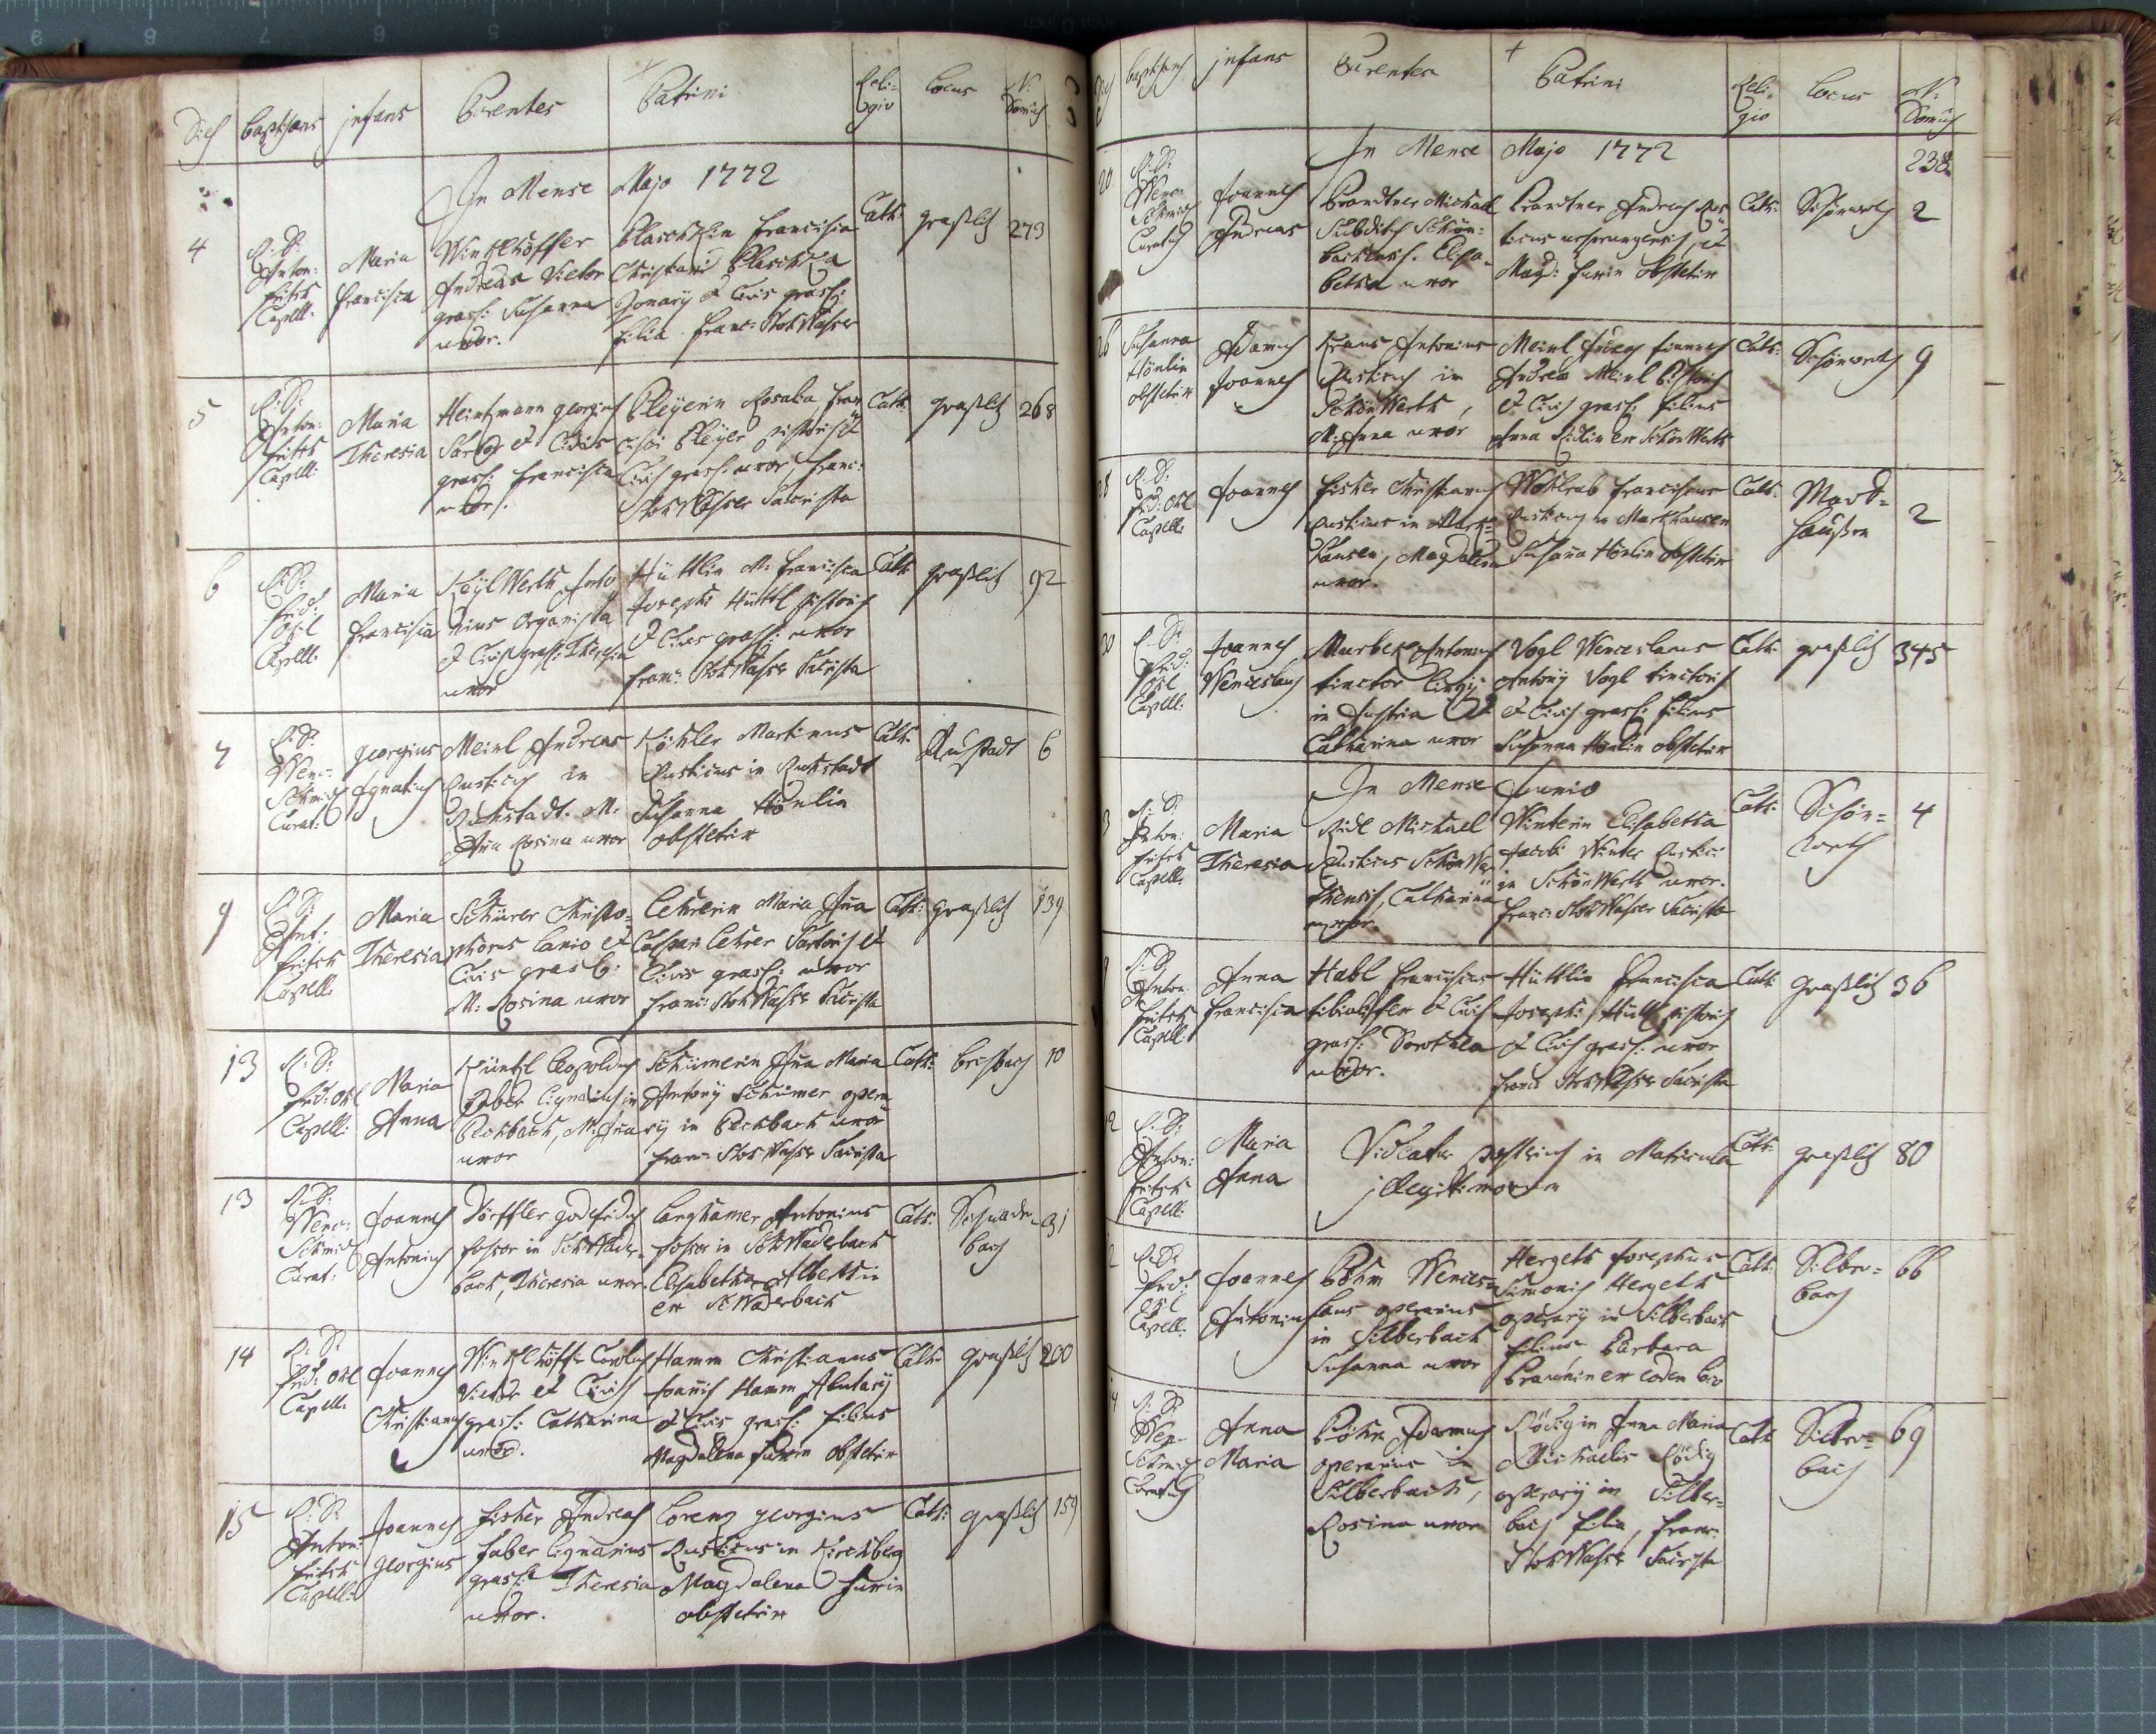 Dies baptisans infans Parentes Patrini Reli= Locus N:
gio Domus
In Mense Majo 1772
4
R: D:
Anton:
Fritsch
Capell:
Maria
Francisca
Winklhöffer
Andreas Victor
grasl: Susanna
uxor.
Plaschkin Francisca
Christiani Plaschka
et Civis grasl:
filia. Franc: StokWasser
Cath:
graßlitz
273
5
R: D:
Anton:
Fritsch
Capell:
Maria
Theresia
Heintzmann georgius
Sartor et Civis
grasl: Francisca
uxor.
Pleÿerin Rosalia Fran
cisci Pleÿer pistoris et
Civis grasl: uxor, Franc:
StokWasser Sacrista
Cath:
graßlitz
268
6
R: D:
Frid:
Okl
Capell:
Maria
Francisca
KeÿlWerth Anto
nius Organista
et Civis grasl: Theresia
uxor
Hüttlin M: Francisca
Josephi Hüttl pistoris
et Civis grasl: uxor
Franc: StokWasser Sacrista
Cath:
graßlitz
92
7
R: D:
Wenc:
Schmid
Curat:
georgius
Ignatius
Meinl Andreas
Rusticus in
Ruhstadt. M:
Ana Rosina uxor
Köhler Martinus
Rusticus in Ruhstadt
Susanna Hönlin
obstetrix
Cath:
Ruhstadt
6
9
R: D:
Ant:
Fritsch
Capell:
Maria
Theresia
Schürer Christo=
phorus Lanio et
Civis grasl:
M: Rosina uxor
Lehrerin Maria Ana
Caspari Lehrer Sartoris et
Civis grasl: uxor
Franc: StokWasser Sacrista
Cath:
graßlitz
139
13
R: D:
Frid: Okl
Capell:
Maria
Anna
Küntzl Leopoldus
Faber Lignarius in
Pechbach, M: Ana
uxor
Schümerin Ana Maria
Antonÿ Schümer opera
rÿ in Pechbach uxor
Franc: StokWasser Sacrista
Cath:
bechbach
10
13
R: D:
Wenc:
Schmid
Curat:
Joannes
Antonius
Dörffler godefridus
fossor in SchWader=
bach, Theresia uxor
Langhamer Antonius
fossor in SchWaderbach
Elisabetha Albertin
ex SchWaderbach
Cath:
Schwader=
bach
31
14
R: D:
Frid: Okl
Capell:
Joannes
Christianus
Winklhöffer Carolus
Victor et Civis
grasl: Catharina
uxor.
Hamm Christianus
Joanis Hamm Alutarÿ
et Civis grasl: filius
Magdalena Fuxin obstetrix
Cath:
graßlitz
200
15
R: D:
Anton:
Fritsch
Capell:
Joannes
Georgius
Fischer Andreas
Faber Lignarius
grasl: Theresia
uxor.
Lorenz georgius
Rusticus in Kirchberg
Magdalena Fuxin
obstetrix
Cath:
graßlitz
159
Dies baptisans infans Parentes Patrini Reli= Locus N:
gio Domus
In Mense Majo 1772
238
20
R: D:
Wenc:
Schmid
Curatus
Joannes
Andreas
Brandtner Michael
Subditus Schön=
bachensis. Elisa=
betha uxor
Brandtner Andreas Rus
ticus et
Magd: Fuxin obstetrix
Cath:
Schönwerth
2
26
Susanna
Hönlin
obstetrix
Adamus
Joannes
Kraus Antonius
Rusticus in
SchönWerth,
M: Anna uxor
Meinl Joannes
Andrea Meinl pistoris
et Civis grasl: filius
Anna Ridlin ex SchönWerth
Cath:
Schönwerth
9
28
R: D:
Frid: Okl
Capell:
Joannes
Fischer Christianus
Rusticus in Mark=
hausen, Magdalena
uxor.
Wohlrab Franciscus
Rusticus in Markhausen
Susana Hönlin obstetrix
Cath:
Mark=
haußen
2
30
R: D:
Frid:
Okl
Capell:
Joannes
Wenceslaus
Murbek Antonius
tinctor
in Austria et
Catharina uxor
Vogl Wenceslaus
Antonÿ Vogl tinctoris
et Civis grasl: filius
Susanna Hönlin obstetrix
Cath:
graßlitz
345
In Mense Junio
3
R: D:
Anton:
Fritsch
Capell:
Maria
Theresia
Ridl Michael
Rusticus SchönWer
thensis, Catharina
uxor.
Winterin Elisabetha
Jacobi Winter Rustici
in SchönWerth uxor.
Franc: StokWasser Sacrista
Cath:
Schön=
werth
4
9
R: D:
Anton:
Fritsch
Capell:
Anna
Francisca
Habl Franciscus
et Civis
grasl: Dorothea
uxor.
Hüttlin Francisca
Josephi Hüttl pistoris
et Civis grasl: uxor
Franc: StokWasser Sacrista
Cath:
graßlitz
36
12
R: D:
Anton:
Fritsch
Capell:
Maria
Anna
Videatur posterius in Matricula
illegitimorum
Cath:
graßlitz
80
12
R: D:
Frid:
Okl
Capell:
Joannes
Antonius
Böhm Wences=
laus operarius
in Silberbach
Susanna uxor
Hergeth Josephus
Simonis Hergeth
operarÿ in Silberbach
filius Barbara
Braunin ex eodem loco
Cath:
Silber=
bach
66
14
R: D:
Wen:
Schmid
Curatus
Anna
Maria
Böhm Adamus
operarius in
Silberbach,
Rosina uxor
Rödigin Anna Maria
Michaelis Rödig
operarÿ in Silber=
bach filia, Franc:
StokWasser Sacrista
Cath:
Silber=
bach
69